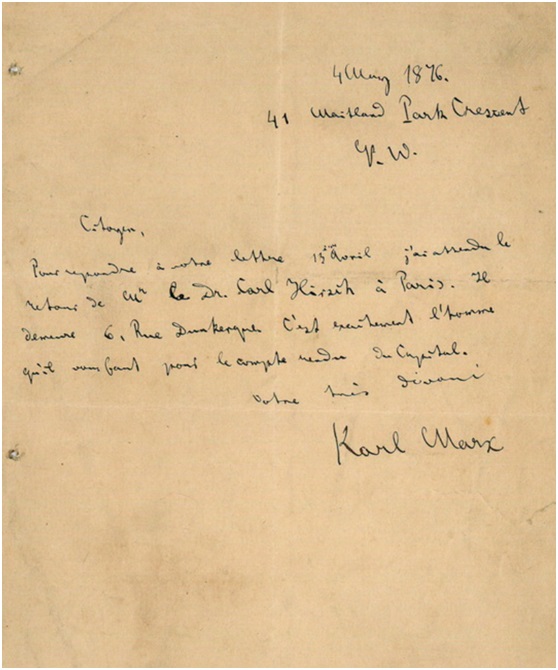 4 May 1876.
41 Maitland Park Crescent
N. W.
Citoyen,
Pour repondre à votre lettre 15 Avril j'ai attendu le
retour de Mr le Dr. Carl Hirsch à Paris. Il
demeure 6, Rue Dunkerque. C'est exactement l'homme
qu'il vous faut pour le compte rendu du Capital.
Votre très dévoué
Karl Marx